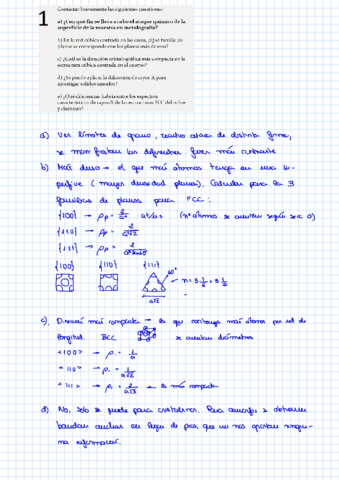 1
Contestar brevemente las siguientes cuestiones:
a) ¿Con qué fin se lleva a cabo el ataque químico de la
superficie de la muestra en metalografía?
b) En la red cúbica centrada en las caras, ¿Qué familia de
planos se corresponde con los planos más densos?
c) ¿Cuál es la dirección cristalográfica más compacta en la
estructura cúbica centrada en el cuerpo?
d) ¿Se puede aplicar la difracción de rayos X para
investigar sólidos amorfos?
e) ¿Qué diferencias habría entre los espectros
característicos de rayos X de los
y
a) Ver límites de grano, reactivo ataca de distinta forma,
se manifiestan las diferentes fases más
b) Más denso → el que más átomos tenga en una su-
perficie (mayor densidad planar). Calcular para las 3
familias de planos para FCC:
{100} → ρp = 2/a² at/
(nº átomos se cuentan según sea a)
{110} → ρp = 2/a²√2
{111} → ρp =
{100} {110} {111}
60°
→ n = 3·1/6 + 3·1/2
a√2
c) Dirección más compacta → la que contenga más átomos por ud de
longitud. BCC se cuentan diámetros
<100> → ρl = 1/a
<110> → ρl = 1/a√2
<111> → ρl = 2/a√3 ← la más compacta
d) No, solo se puede para cristalinos. Para amorfos se obtienen
bandas anchas en lugar de picos, que no nos aportan ningu-
na información.